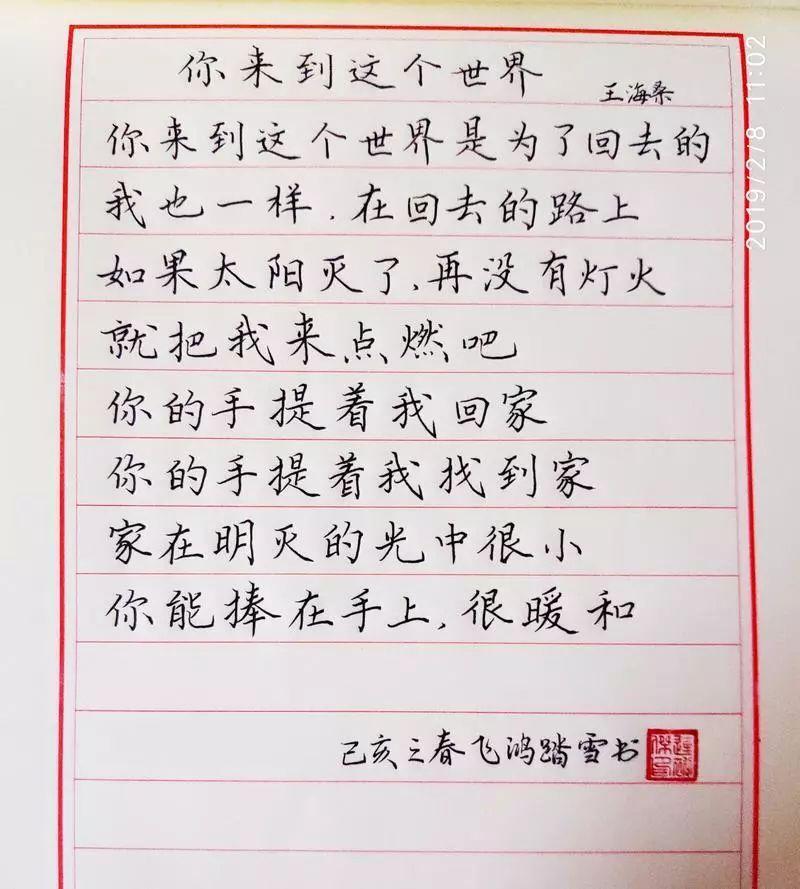 你来到这个世界
王海桑
你来到这个世界是为了回去的
我也一样．在回去的路上
如果太阳灭了，再没有灯火
就把我来点燃吧
你的手提着我回家
你的手提着我找到家
家在明灭的光中很小
你能捧在手上，很暖和
己亥立春飞鸿踏雪书
2019/2/8 11:02